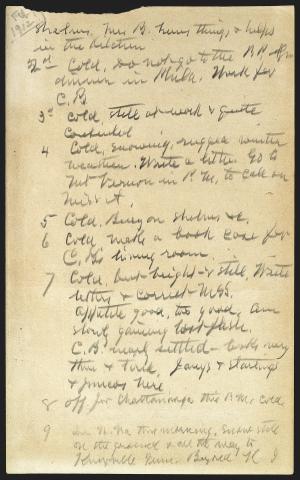 Feb
1912
shelves, Mrs B. hems things & helps
in the kitchen
2nd Cold, do not go to the
dinner in Phila. Work for
C. B
3d Cold, still at work & quite
Contented
4 Cold, snowing, rugged winter
weather. Write a little. Go to
Mt Vernon in P.M. to call on
Miss A.
5 Cold. Busy on shelves &c.
6 Cold made a book case for
C. B's living room.
7 Cold, but bright & still, Write
letters & correct MSS.
Appetite good, too good, am
slowly gaining lost flesh.
C. B. nearly settled - looks very
thin & tired, Jays & starlings
& juncos here
8 Off for Chattanooga this P.M. Cold
9 In Va this morning, snow still
on the ground & all the way to
Knoxville Tenn. Beyond K I